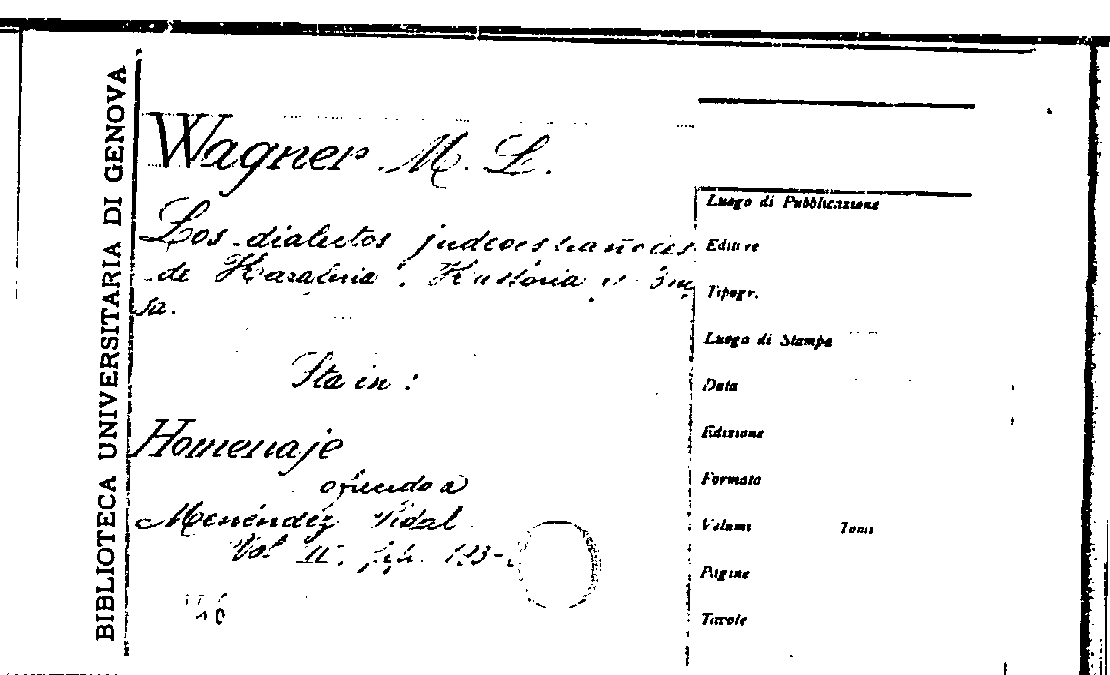 BIBLIOTECA UNIVERSITARIA DI GENOVA
Wagner M. L.
Los dialectos judeoespañoles
de Karaferia, Kastoria y Bru
sa.
Sta in:
Homenaje
ofrecido a
Menéndez Pidal
Vol II. pp. 193-
Luogo di Pubblicazione
Editore
Tipogr.
Luogo di Stampa
Data
Edizione
Formato
Volumi Tomi
Pagine
Tavole